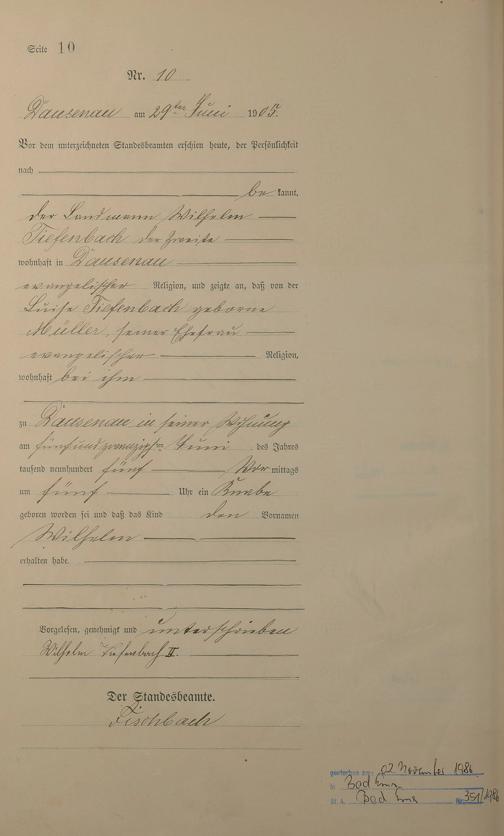 Seite 10
Nr. 10
Dausenau am 29ten Juni 1905.
Vor dem unterzeichneten Standesbeamten erschien heute, der Persönlichkeit
nach
bekannt,
der Landmann Wilhelm
Tiefenbach der Zweite
wohnhaft in Dausenau
evangelischer Religion, und zeigte an, daß von der
Luise Tiefenbach geborne
Müller, seiner Ehefrau
evangelischer Religion,
wohnhaft bei ihm
zu Dausenau in seiner Wohnung
am fünfundzwanzigsten Juni des Jahres
tausend neunhundert fünf Vormittags
um fünf Uhr ein Knabe
geboren worden sei und daß das Kind den Vornamen
Wilhelm
erhalten habe.
Vorgelesen, genehmigt und unterschrieben
Wilhelm Tiefenbach II.
Der Standesbeamte.
Fischbach
gestorben am 02 November 1986
in Bad Ems
St. A. Bad Ems Nr. 351/1986